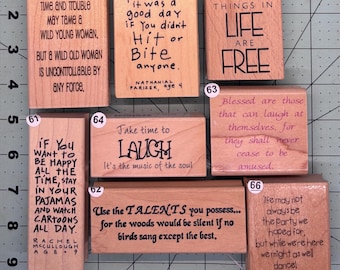 TIME AND TROUBLE
MAY TAME A
WILD YOUNG WOMAN,
BUT A WILD OLD WOMAN
IS UNCONTROLLABLE BY
ANY FORCE.
it was a
good day
if you didn't
Hit or
Bite
anyone.
NATHANIAL
PARIZEK, age 4
THINGS IN
LIFE
ARE
FREE
63
Blessed are those
that can laugh at
themselves, for
they shall never
cease to be
amused.
61
if you
WANT TO
BE HAPPY
ALL THE
TIME, STAY
IN YOUR
PAJAMAS
AND WATCH
CARTOONS
ALL DAY.
RACHEL
MCCULLOUGH
AGE 9
64
Take time to
LAUGH
It's the music of the soul
62
Use the TALENTS you possess...
for the woods would be silent if no
birds sang except the best.
66
life may not
always be
the party we
hoped for,
but while we're here
we might as well
dance!
3
4
5
6
7
8
9